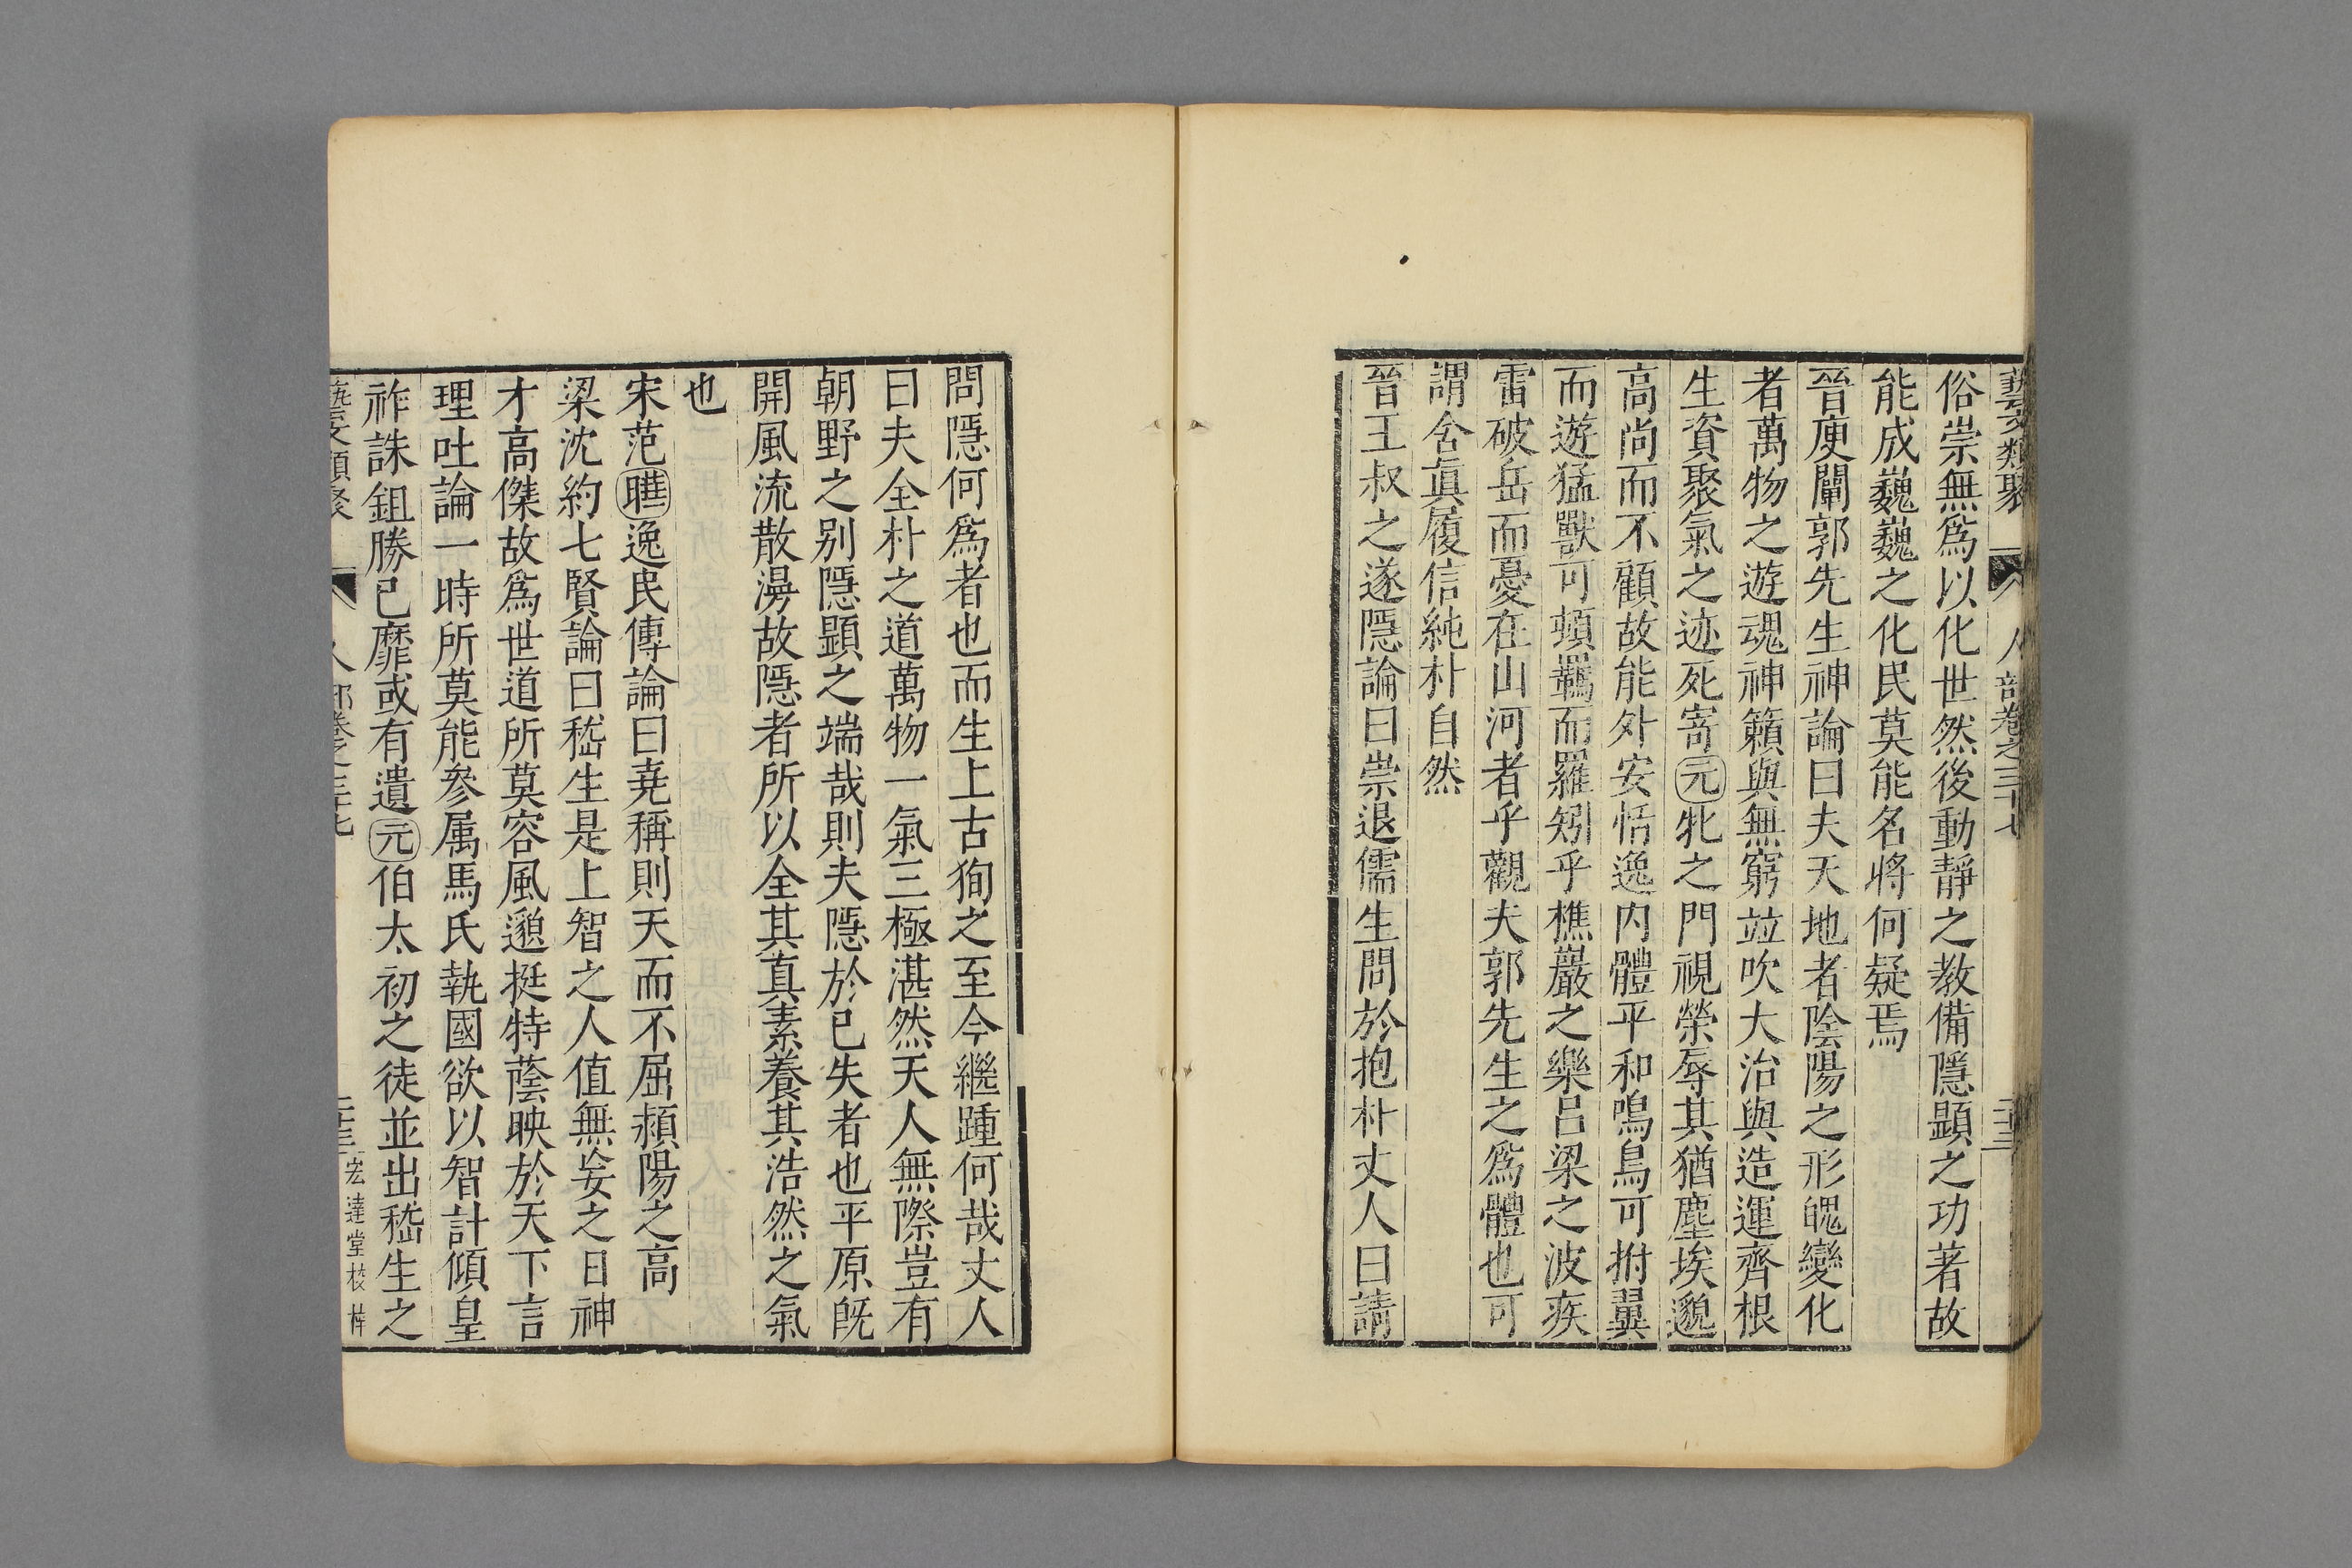 藝文類聚 人部卷之三十七 二十三
俗崇無爲以化世然後動靜之教備隱顯之功著故
能成巍巍之化民莫能名將何疑焉
晉庾闡郭先生神論曰夫天地者陰陽之形魄變化
者萬物之遊魂神籟與無窮竝吹大冶與造運齊根
生資聚氣之迹死寄元牝之門視榮辱其猶塵埃邈
高尚而不顧故能外安恬逸内體平和鳴鳥可拊翼
而遊猛獸可頓羈而羅矧乎樵巖之樂呂梁之波疾
雷破岳而憂在山河者乎觀夫郭先生之爲體也可
謂含真履信純朴自然
晉王叔之遂隱論曰崇退儒生問於抱朴丈人曰請
問隱何爲者也而生上古狥之至今繼踵何哉丈人
曰夫全朴之道萬物一氣三極湛然天人無際豈有
朝野之别隱顯之端哉則夫隱於已失者也平原旣
開風流散漭故隱者所以全其真素養其浩然之氣
也
宋范曄逸民傳論曰堯稱則天而不屈潁陽之高
梁沈約七賢論曰嵇生是上智之人值無妄之日神
才高傑故爲世道所莫容風邈挺特蔭映於天下言
理吐論一時所莫能參属馬氏執國欲以智計傾皇
祚誅鉏勝已靡或有遺元伯太初之徒並出嵇生之
藝文類聚 人部卷之三十七 二十三 宏達堂校梓